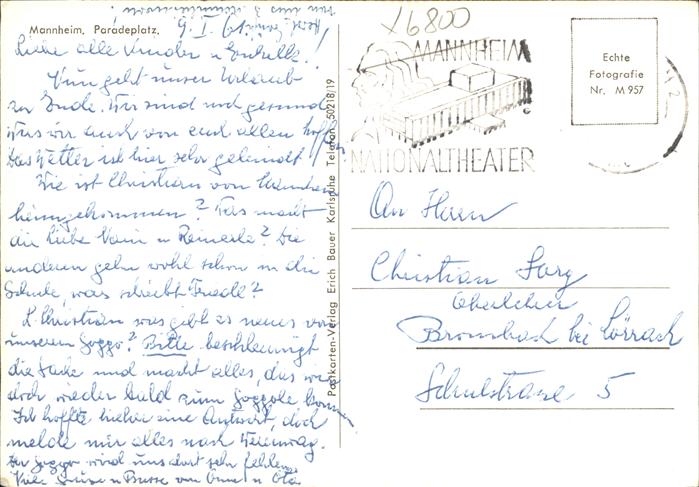 Mannheim, Paradeplatz,
Liebe alle Kinder u Enkelle!
Nun geht unser Urlaub
zu Ende. Wir sind noch gesund
was wir auch von euch allen hoffen
Das Wetter ist hier sehr gelinde!
Wie ist Christian von
heimgekommen? Was macht
die liebe u Reinerle? Die
anderen gehn wohl schon in die
Schule, was schreibt Friedl?
L. Christian was gebt es neues von
unserem Joggo? Bitte beschleunigt
die Sache und macht alles, das wir
doch wieder bald zum Joggole kommen
Ich hoffte bisher eine Antwort, doch
melde mir alles nach
Der Joggo wird uns dort sehr fehlen
Viele Grüsse u Busse von Oma u Opa
Postkarten-Verlag Erich Bauer Karlsruhe Telefon 50218/19
6800
MANNHEIM
NATIONALTHEATER
Echte
Fotografie
Nr. M 957
An Herrn
Christian Sarg
Oberlehrer
Brombach bei Lörrach
Schulstrasse 5